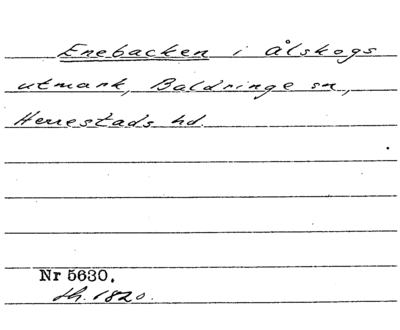 Enebacken i Ålskogs
utmark, Baldringe sn,
Herrestads hd.
Nr 5630.
1820.